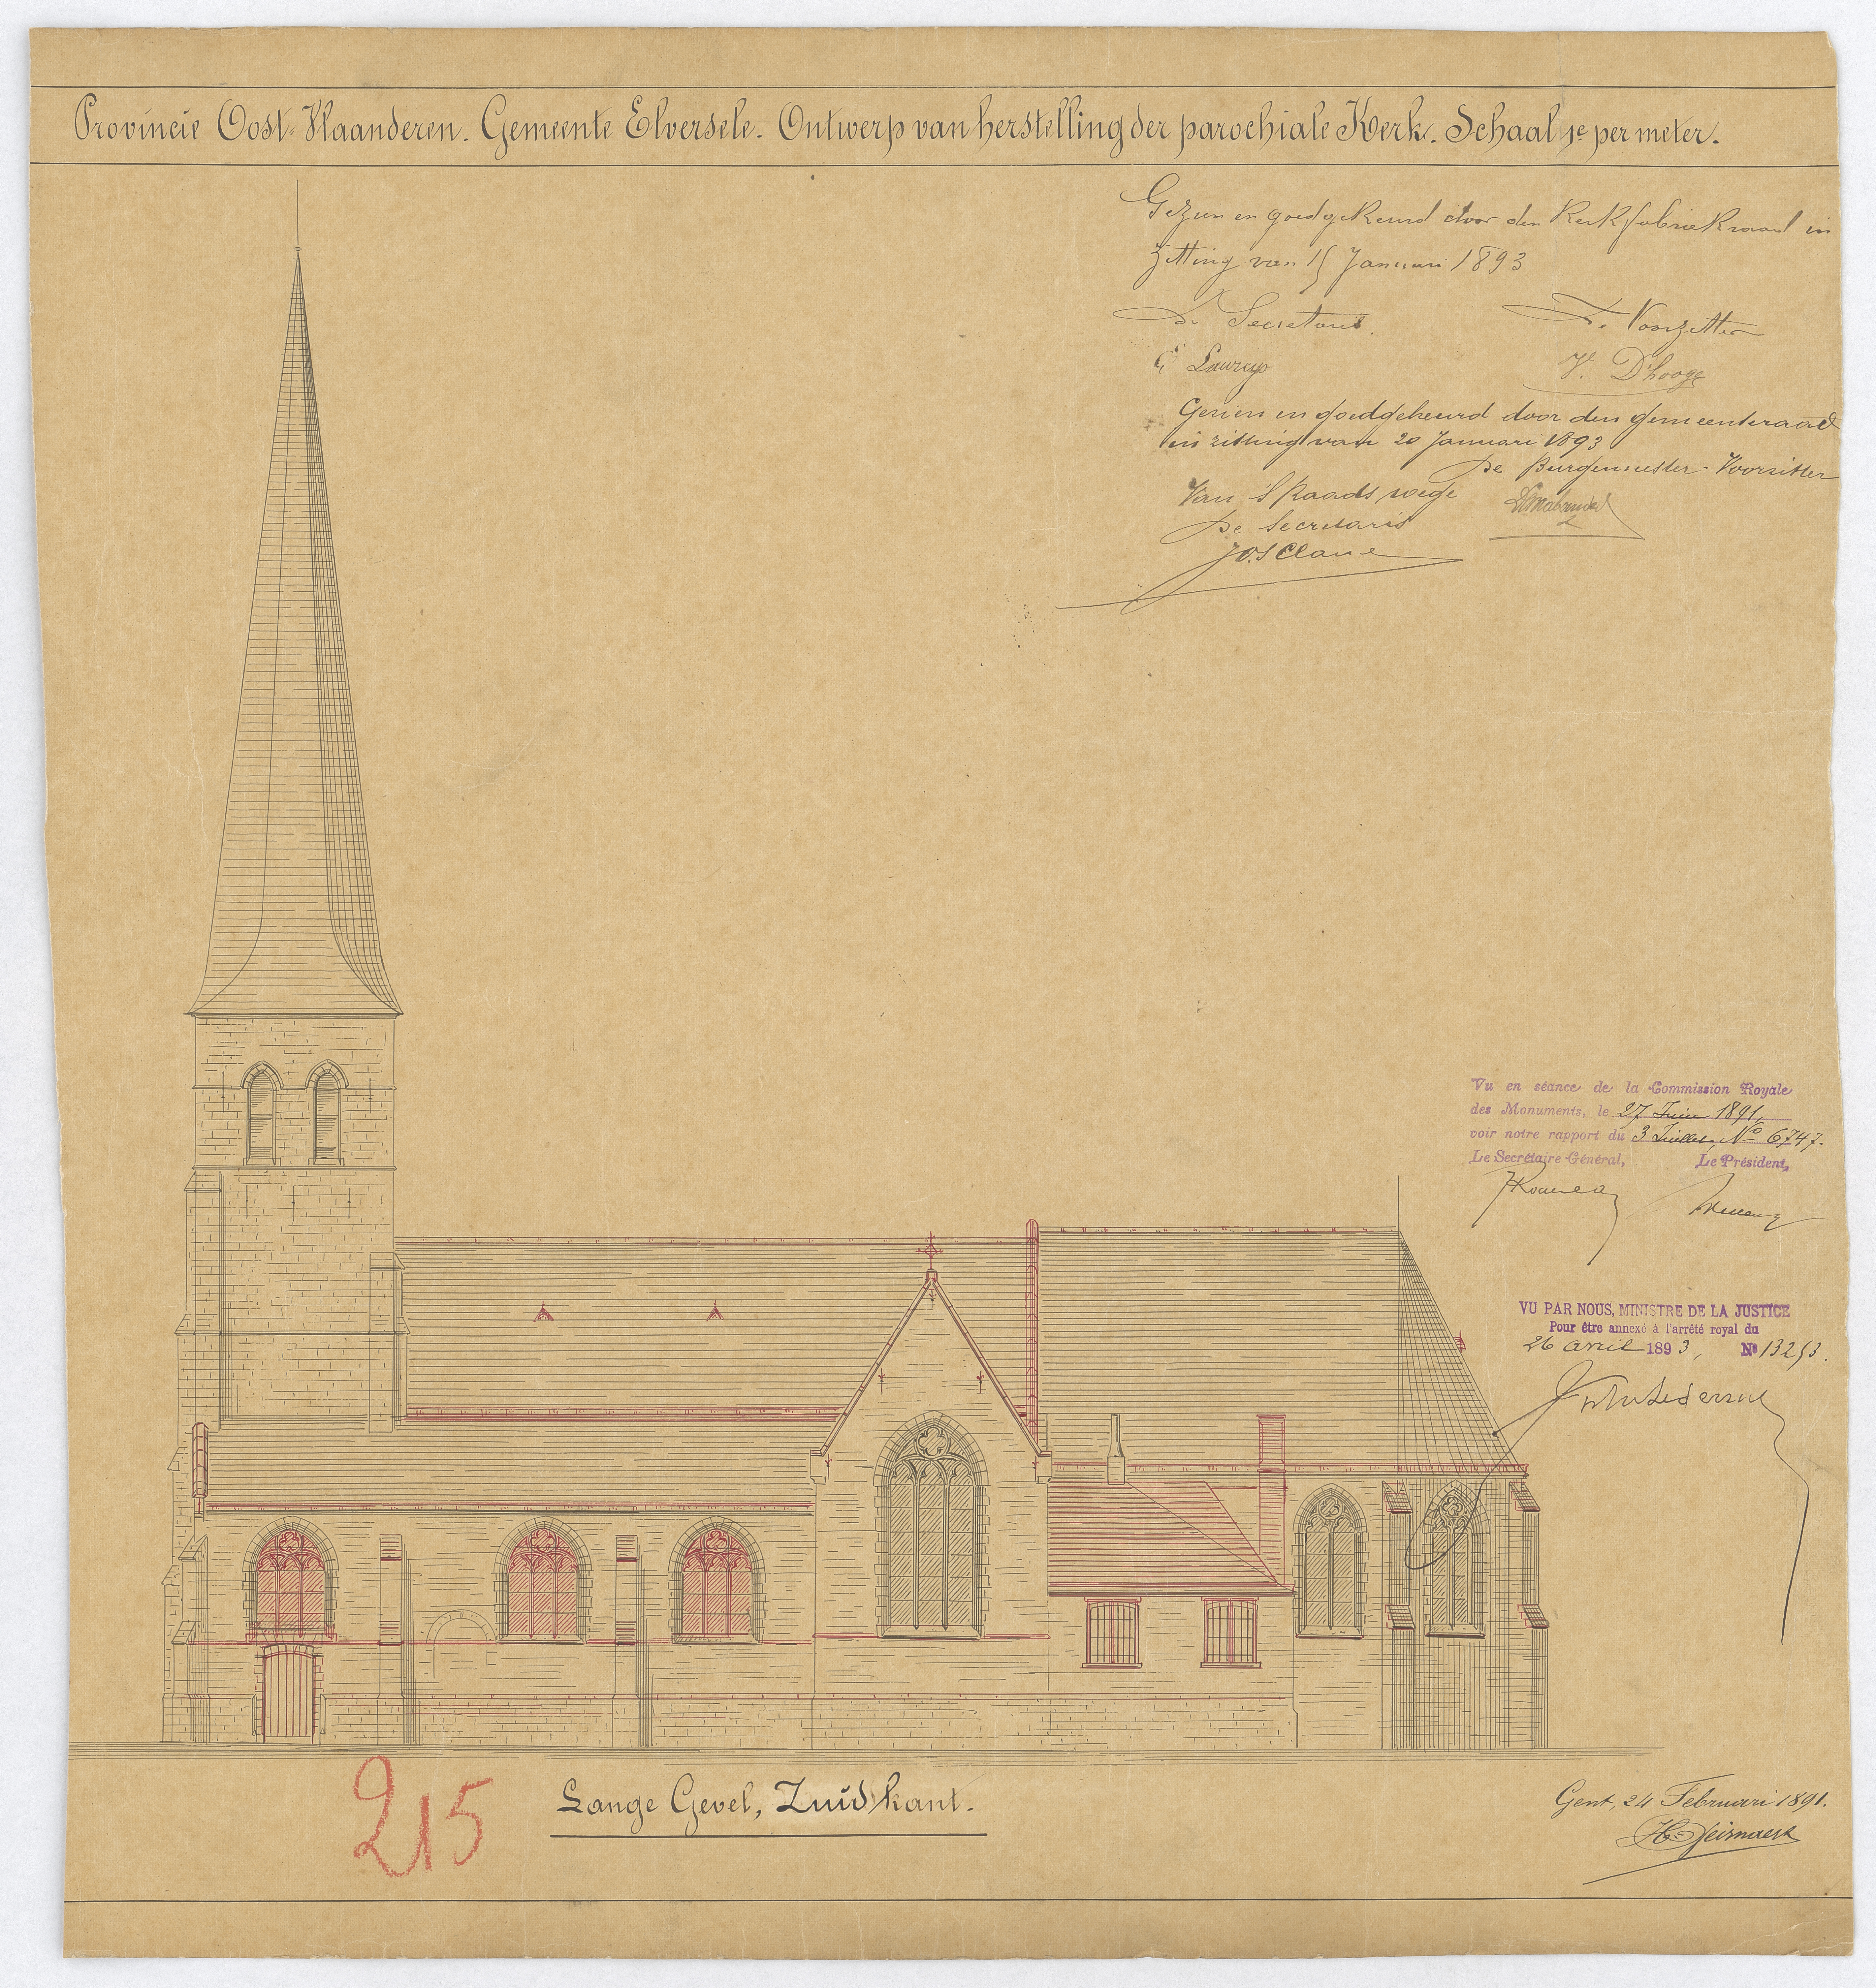 Provincie Oost-Vlaanderen. Gemeente Elversele. Ontwerp van herstelling der parochiale Kerk. Schaal 1c per meter.
Gezien en goedgekeurd door den Kerkfabriekraad in
Zitting van 15 Januari 1893
De Secretaris.
De Voorzitter
Laureys
D'hooge
Gezien en goedgekeurd door den gemeenteraad
in zitting van 20 Januari 1893
De Burgemeester-Voorzitter
Van 'S Raads wege
De Secretaris
Vu en séance de la Commission Royale
des Monuments, le 27 Juin 1891,
voir notre rapport du 3 Juillet, No 6747.
Le Secrétaire-Général, Le Président,
VU PAR NOUS, MINISTRE DE LA JUSTICE
Pour être annexé à l'arrêté royal du
26 avril 1893, No 13253.
215
Lange Gevel, Zuidkant.
Gent, 24 Februari 1891.